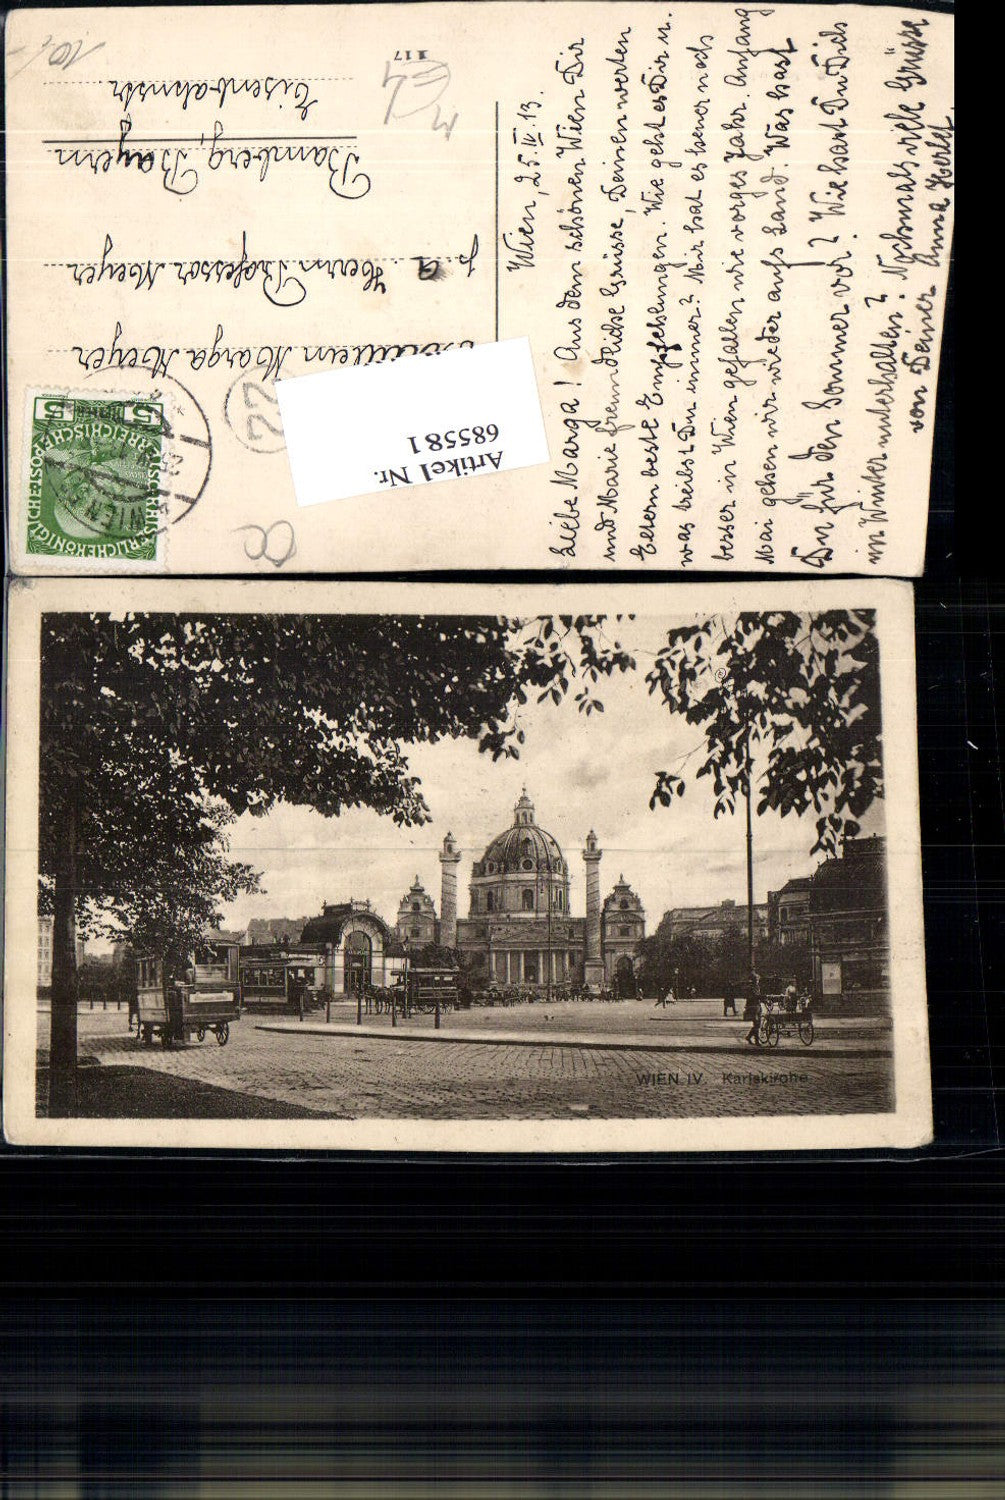 Wien, 25.IV.13.
Liebe Marga! Aus dem schönen Wien Dir
und Marie freundliche Grüsse, Deinen werten
Eltern beste Empfehlungen. Wie geht es Dir u.
was treibst Du immer? Mir hat es heuer noch
besser in Wien gefallen wie voriges Jahr. Anfang
Mai gehen wir wieder aufs Land. Was hast
Du für den Sommer vor? Wie hast Du Dich
im Winter unterhalten? Nochmals viele Grüsse
von Deiner Anna
117
Marga Meyer
p. A. Herrn Professor Meyer
Bamberg, Bayern
Eisenbahnstr
10,-
22
8
5 5
WIEN
Artikel Nr.
68558 1
WIEN IV. Karlskirche